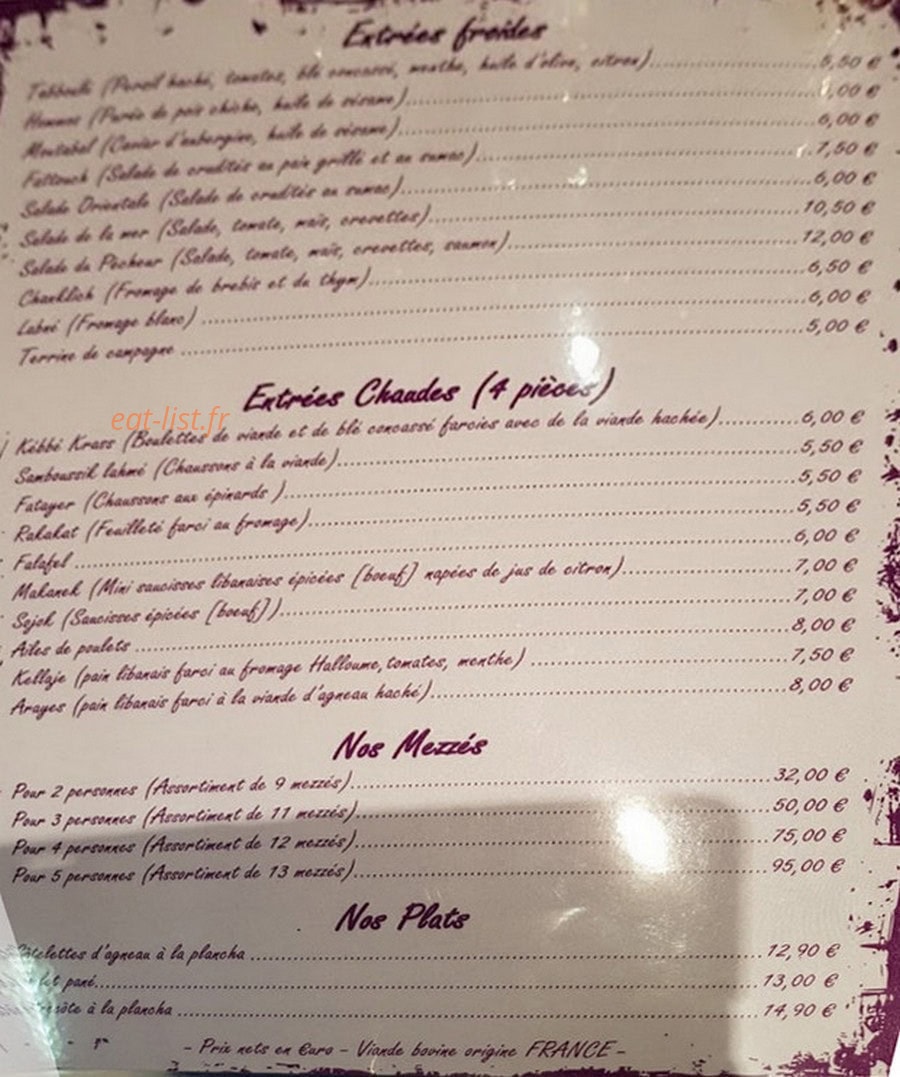 Entrées froides
Tabboulé (Persil haché, tomates, blé concassé, menthe, huile d'olive, citron) 5,50 €
Hommos (Purée de pois chiche, huile de sésame) ,00 €
Moutabal (Caviar d'aubergine, huile de sésame) 6,00 €
Fattouch (Salade de crudités au pain grillé et au sumac) 7,50 €
Salade Orientale (Salade de crudités au sumac) 6,00 €
Salade de la mer (Salade, tomate, maïs, crevettes) 10,50 €
Salade du Pecheur (Salade, tomate, maïs, crevettes, saumon) 12,00 €
Chanklich (Fromage de brebis et du thym) 6,50 €
Labné (Fromage blanc) 6,00 €
Terrine de campagne 5,00 €
Entrées Chaudes (4 pièces)
eat-list.fr
Kébbé Krass (Boulettes de viande et de blé concassé farcies avec de la viande hachée) 6,00 €
Samboussik lahmé (Chaussons à la viande) 5,50 €
Fatayer (Chaussons aux épinards ) 5,50 €
Rakakat (Feuilleté farci au fromage) 5,50 €
Falafel 6,00 €
Makanek (Mini saucisses libanaises épicées [boeuf] napées de jus de citron) 7,00 €
Sojok (Saucisses épicées [boeuf]) 7,00 €
Ailes de poulets 8,00 €
Kellaje (pain libanais farci au fromage Halloume, tomates, menthe) 7,50 €
Arayes (pain libanais farci à la viande d'agneau haché) 8,00 €
Nos Mezzés
Pour 2 personnes (Assortiment de 9 mezzés) 32,00 €
Pour 3 personnes (Assortiment de 11 mezzés) 50,00 €
Pour 4 personnes (Assortiment de 12 mezzés) 75,00 €
Pour 5 personnes (Assortiment de 13 mezzés) 95,00 €
Nos Plats
Côtelettes d'agneau à la plancha 12,90 €
pané 13,00 €
à la plancha 14,90 €
- Prix nets en €uro - Viande bovine origine FRANCE -